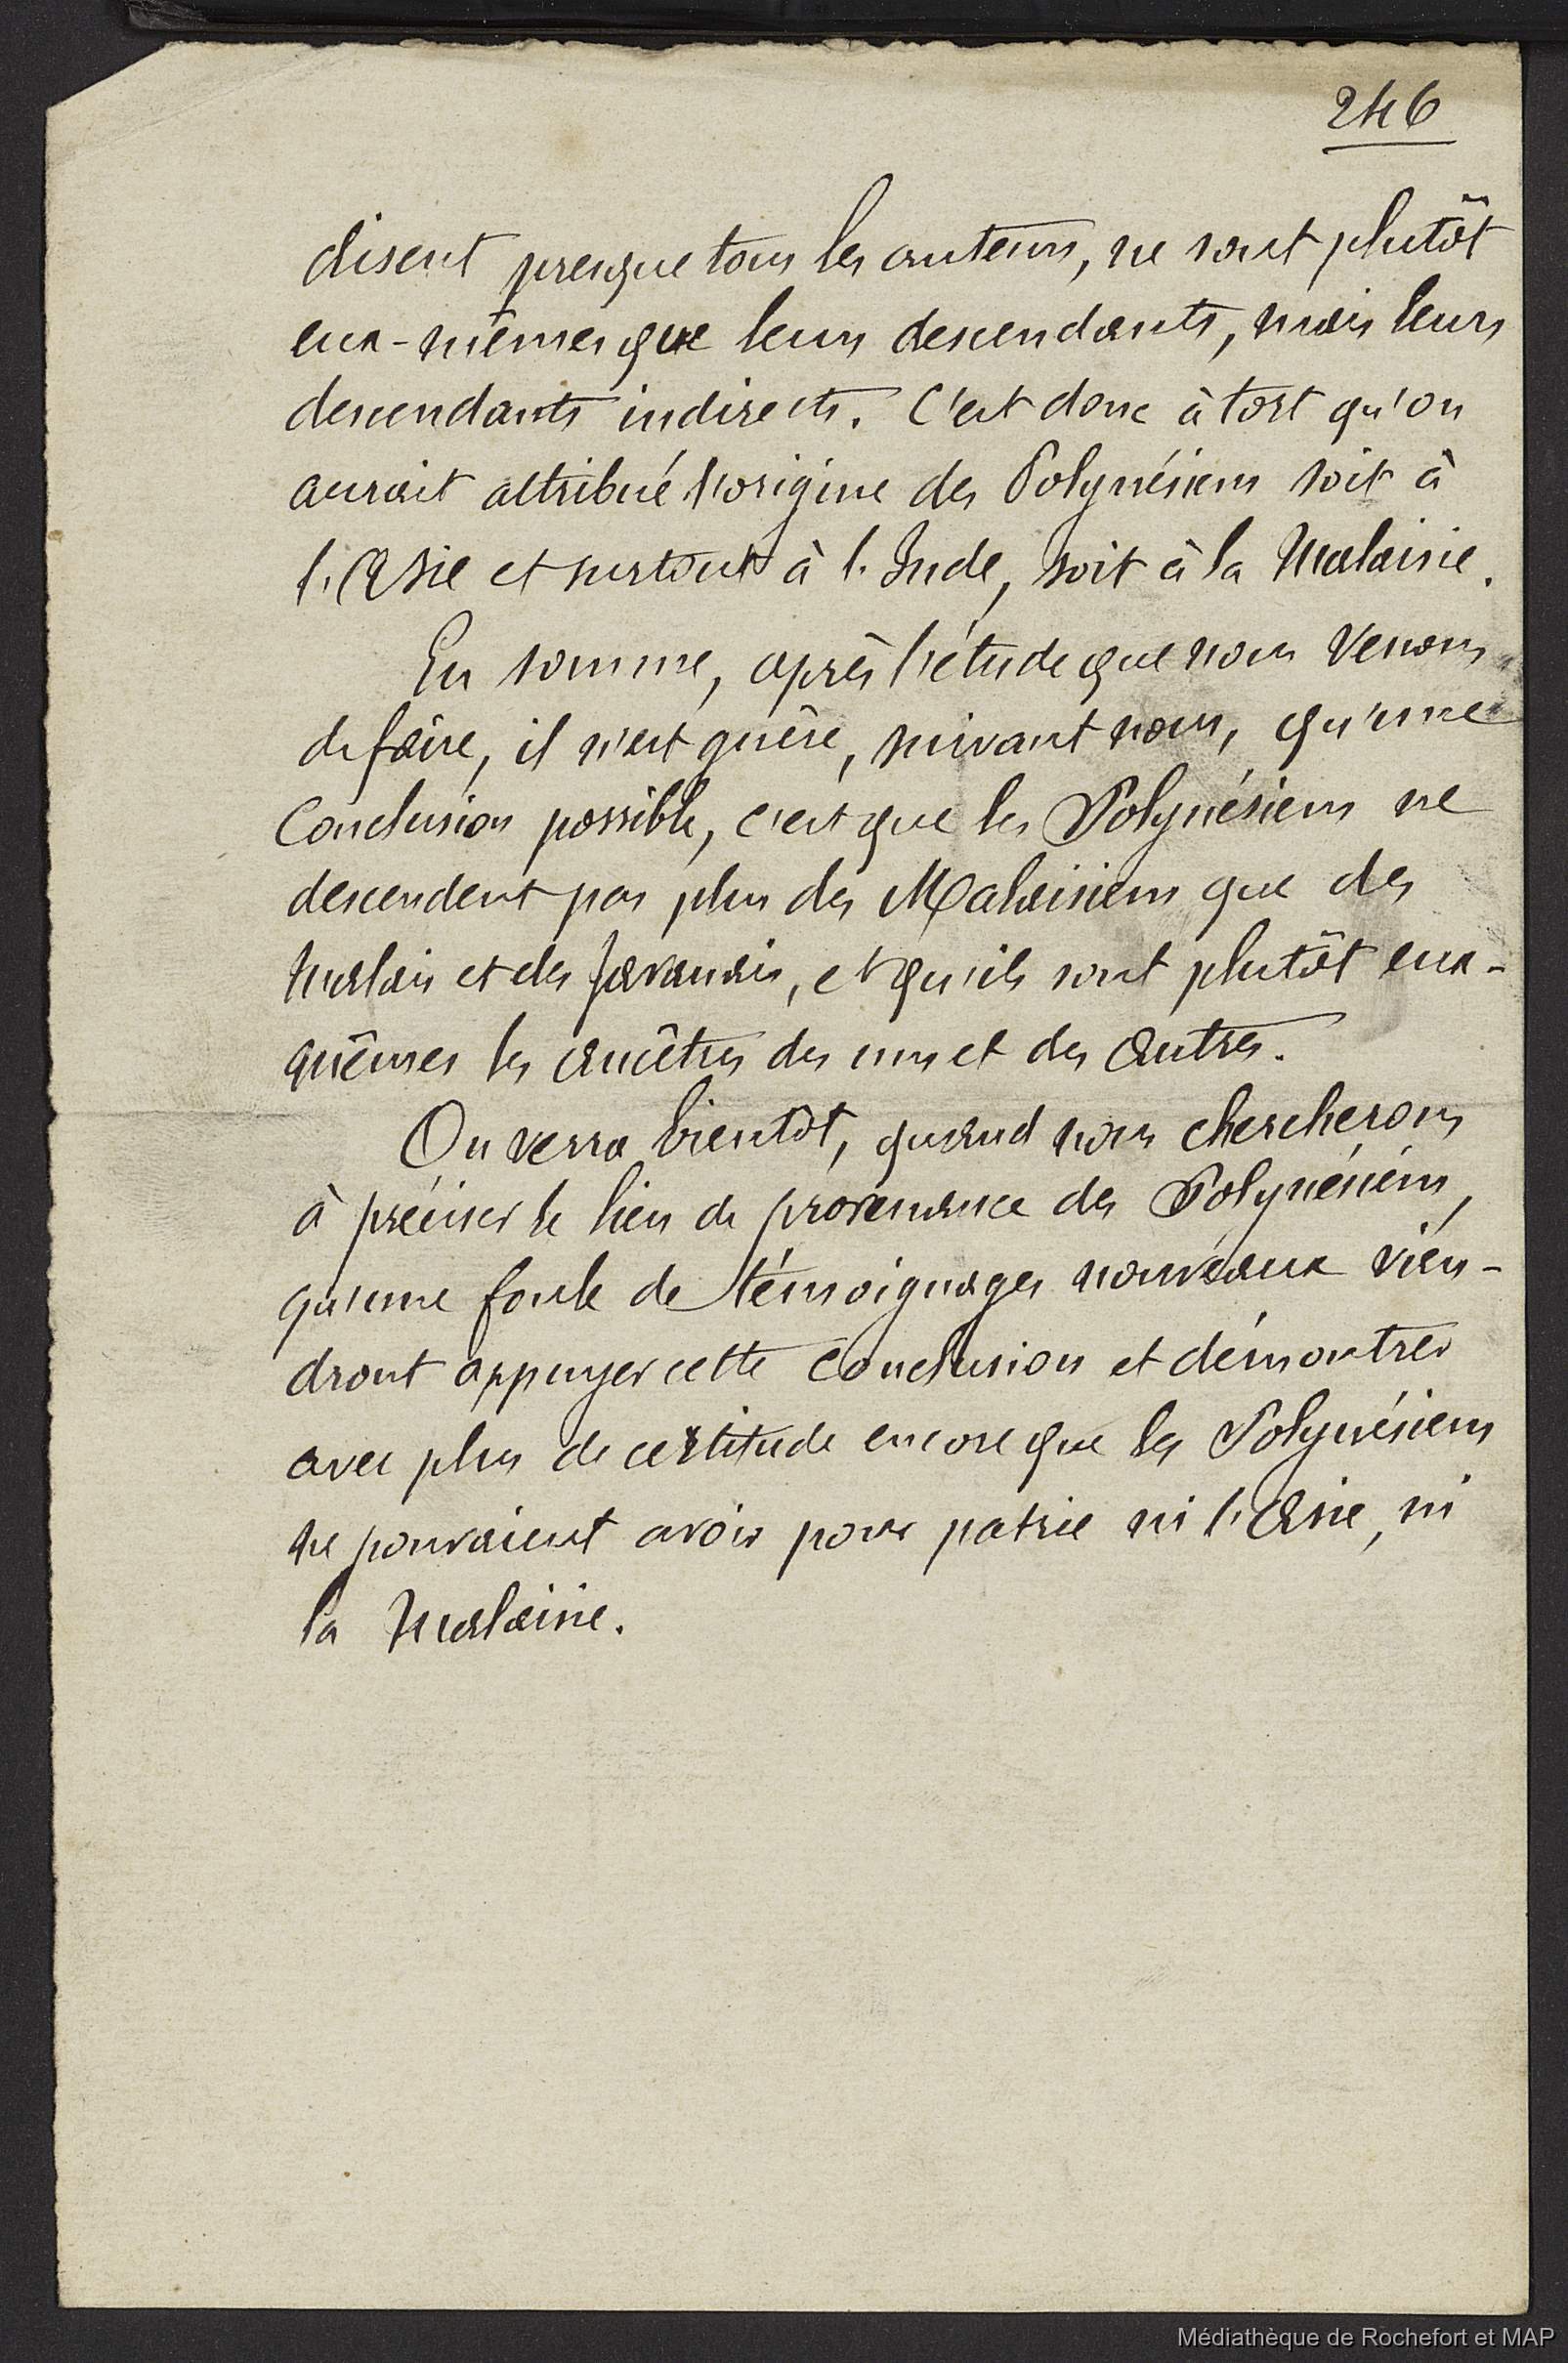 246
disent presque tous les auteurs, ne sont plutôt
eux-mêmes que leurs descendants, mais leurs
descendants indirects. C'est donc à tort qu'on
aurait attribué l'origine des Polynésiens soit à
l'Asie et surtout à l'Inde, soit à la Malaisie.
En somme, après l'étude que nous venons
de faire, il n'est guère, suivant nous, qu'une
Conclusion possible, c'est que les Polynésiens ne
descendent pas plus des Malaisiens que des
Malais et des Javanais, et qu'ils sont plutôt eux-
mêmes les ancêtres des uns et des autres.
On verra bientôt, quand nous chercherons
à préciser le lieu de provenance des Polynésiens,
qu'une foule de témoignages nouveaux vien-
dront appuyer cette Conclusion et démontrer
avec plus de certitude encore que les Polynésiens
ne pouvaient avoir pour patrie ni l'Asie, ni
la Malaisie.
Médiathèque de Rochefort et MAP